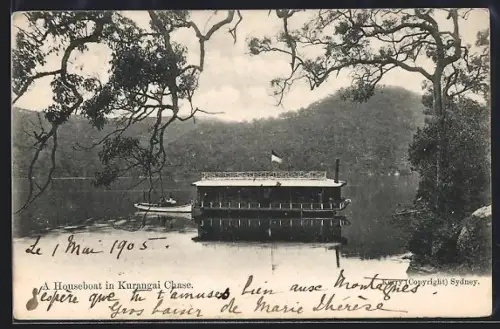 Le 1 Mai 1905 -
A Houseboat in Kurangai Chase.
Kerry (Copyright) Sydney.
J'espère que tu t'amuses bien aux Montagnes,
Gros baiser de Marie Thérèse